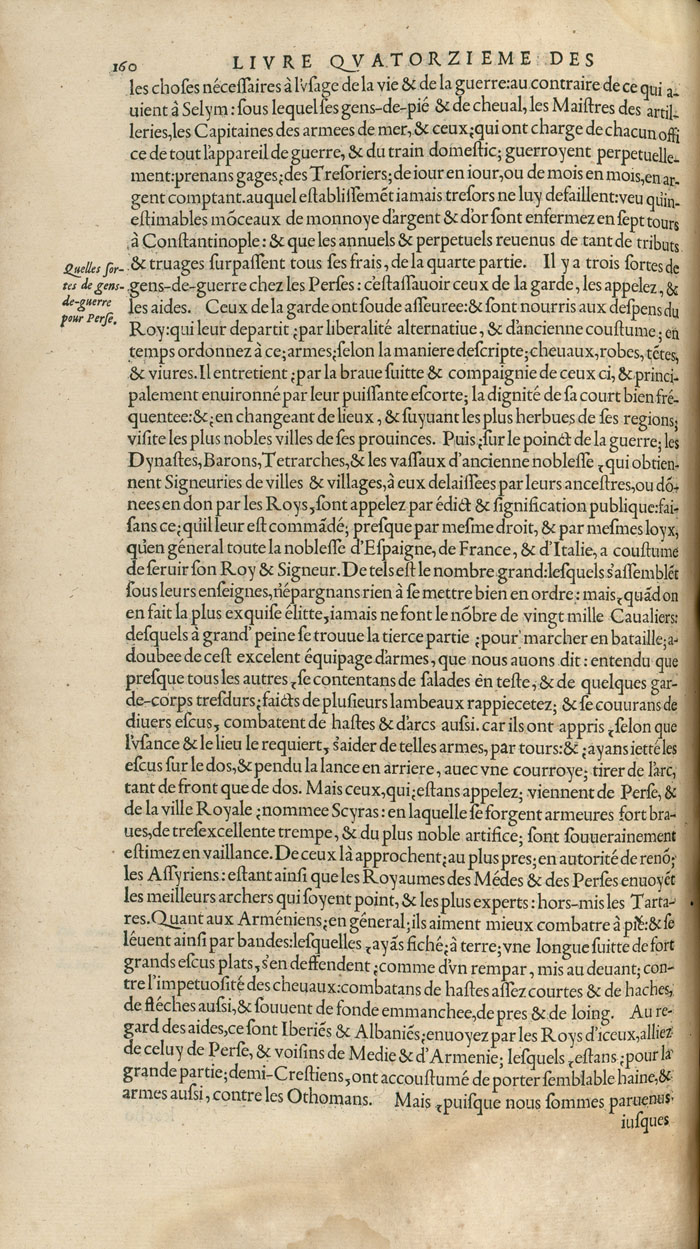 160
LIVRE QVATORZIEME DES
les choſes néceſſaires à l'vſage de la vie & de la guerre: au contraire de ce qui a-
uient à Selym: ſous lequel ſes gens-de-pié & de cheual, les Maiſtres des artil-
leries, les Capitaines des armees de mer, & ceux; qui ont charge de chacun offi
ce de tout l'appareil de guerre, & du train domeſtic; guerroyent perpetuelle-
ment: prenans gages; des Treſoriers; de iour en iour, ou de mois en mois, en ar-
gent comptant. auquel eſtabliſſemẽt iamais treſors ne luy defaillent: veu qu'in-
eſtimables mõceaux de monnoye d'argent & d'or ſont enfermez en ſept tours
à Conſtantinople: & que les annuels & perpetuels reuenus de tant de tributs
& truages ſurpaſſent tous ſes frais, de la quarte partie. Il y a trois ſortes de
Quelles ſor-
tes de gens-
de-guerre
pour Perſe.
gens-de-guerre chez les Perſes: c'eſtaſſauoir ceux de la garde, les appelez, &
les aides. Ceux de la garde ont ſoude aſſeuree: & ſont nourris aux deſpens du
Roy: qui leur departit ;par liberalité alternatiue, & d'ancienne couſtume; en
temps ordonnez à ce; armes; ſelon la maniere deſcripte; cheuaux, robes, tẽtes,
& viures. Il entretient ;par la braue ſuitte & compaignie de ceux ci, & princi-
palement enuironné par leur puiſſante eſcorte; la dignité de ſa court bien fré-
quentee: &; en changeant de lieux, & ſuyuant les plus herbues de ſes regions;
viſite les plus nobles villes de ſes prouinces. Puis ;ſur le poinct de la guerre; les
Dynaſtes, Barons, Tetrarches, & les vaſſaux d'ancienne nobleſſe , qui obtien-
nent Signeuries de villes & villages, à eux delaiſſees par leurs anceſtres, ou dõ-
nees en don par les Roys, ſont appelez par édict & ſignification publique: fai-
ſans ce; qu'il leur eſt commãdé; preſque par meſme droit, & par meſmes loyx,
qu'en géneral toute la nobleſſe d'Eſpaigne, de France, & d'Italie, a couſtume
de ſeruir ſon Roy & Signeur. De tels eſt le nombre grand: leſquels s'aſſemblẽt
ſous leurs enſeignes, n'épargnans rien à ſe mettre bien en ordre: mais , quãd on
en fait la plus exquiſe élitte, iamais ne font le nõbre de vingt mille Caualiers:
deſquels à grand' peine ſe trouue la tierce partie ;pour marcher en bataille; a-
doubee de ceſt excelent équipage d'armes, que nous auons dit: entendu que
preſque tous les autres , ſe contentans de ſalades en teſte, & de quelques gar-
de-corps treſdurs; faicts de pluſieurs lambeaux rappiecetez; & ſe couurans de
diuers eſcus, combatent de haſtes & d'arcs auſsi. car ils ont appris , ſelon que
l'vſance & le lieu le requiert, s'aider de telles armes, par tours: & ; ayans ietté les
eſcus ſur le dos, & pendu la lance en arriere, auec vne courroye; tirer de l'arc,
tant de front que de dos. Mais ceux, qui; eſtans appelez; viennent de Perſe, &
de la ville Royale ;nommee Scyras: en laquelle ſe forgent armeures fort bra-
ues, de treſexcellente trempe, & du plus noble artifice; ſont ſouuerainement
eſtimez en vaillance. De ceux là approchent; au plus pres; en autorité de renõ;
les Aſſyriens: eſtant ainſi que les Royaumes des Médes & des Perſes enuoyẽt
les meilleurs archers qui ſoyent point, & les plus experts: hors-mis les Tarta-
res. Quant aux Arméniens; en géneral; ils aiment mieux combatre à pié: & ſe
léuent ainſi par bandes: leſquelles , ayãs fiché; à terre; vne longue ſuitte de fort
grands eſcus plats, s'en deffendent ;comme d'vn rempar, mis au deuant; con-
tre l'impetuoſité des cheuaux: combatans de haſtes aſſez courtes & de haches,
de fléches auſsi, & ſouuent de fonde emmanchee, de pres & de loing. Au re-
gard des aides, ce ſont Iberiẽs & Albaniẽs; enuoyez par les Roys d'iceux, alliez
de celuy de Perſe, & voiſins de Medie & d'Armenie; leſquels , eſtans ; pour la
grande partie; demi-Creſtiens, ont accouſtumé de porter ſemblable haine, &
armes auſsi, contre les Othomans. Mais , puiſque nous ſommes paruenus
iuſques